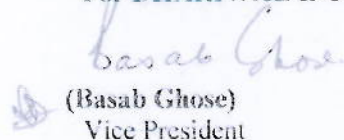 Basab Ghose
(Basab Ghose)
Vice President